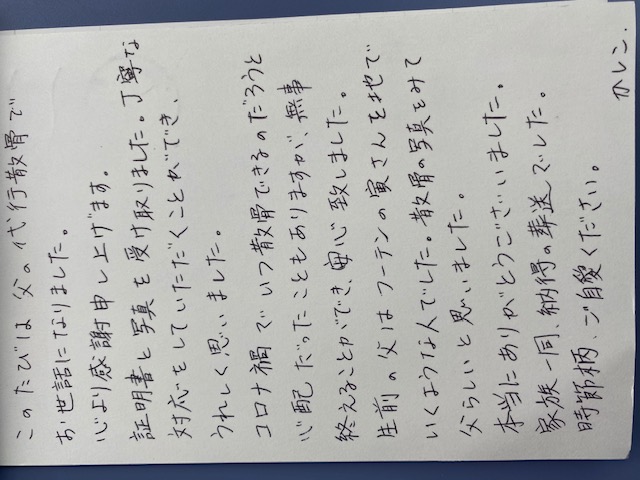 このたびは父の代行散骨で
お世話になりました。
心より感謝申し上げます。
証明書と写真を受け取りました。丁寧な
対応をしていただくことができ、
うれしく思いました。
コロナ禍でいつ散骨できるのだろうと
心配だったこともありますが、無事
終えることができ、安心致しました。
生前の父はフーテンの寅さんを地で
いくような人でした。散骨の写真をみて
父らしいと思いました。
本当にありがとうございました。
家族一同、納得の葬送でした。
時節柄、ご自愛ください。
かしこ.